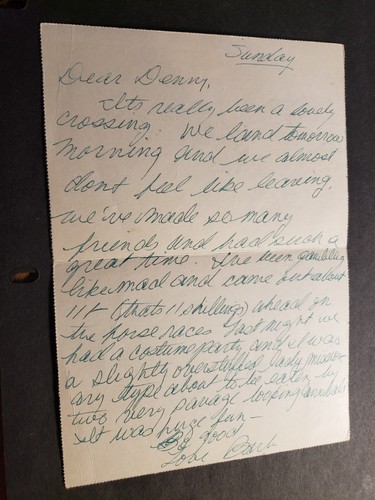 Sunday
Dear Denny,
Its really been a lovely
crossing. We land tomorrow
morning and we almost
dont feel like leaving.
we've made so many
friends and had such a
great time. I've been gambling
like mad and came out about
11/- (thats 11 shillings) ahead on
the horse races last night we
had a costume party and I was
a slightly overstuffed lady mission-
ary type about to be eaten by
two very savage looking cannibals
It was huge fun -
Be good
Love Barb